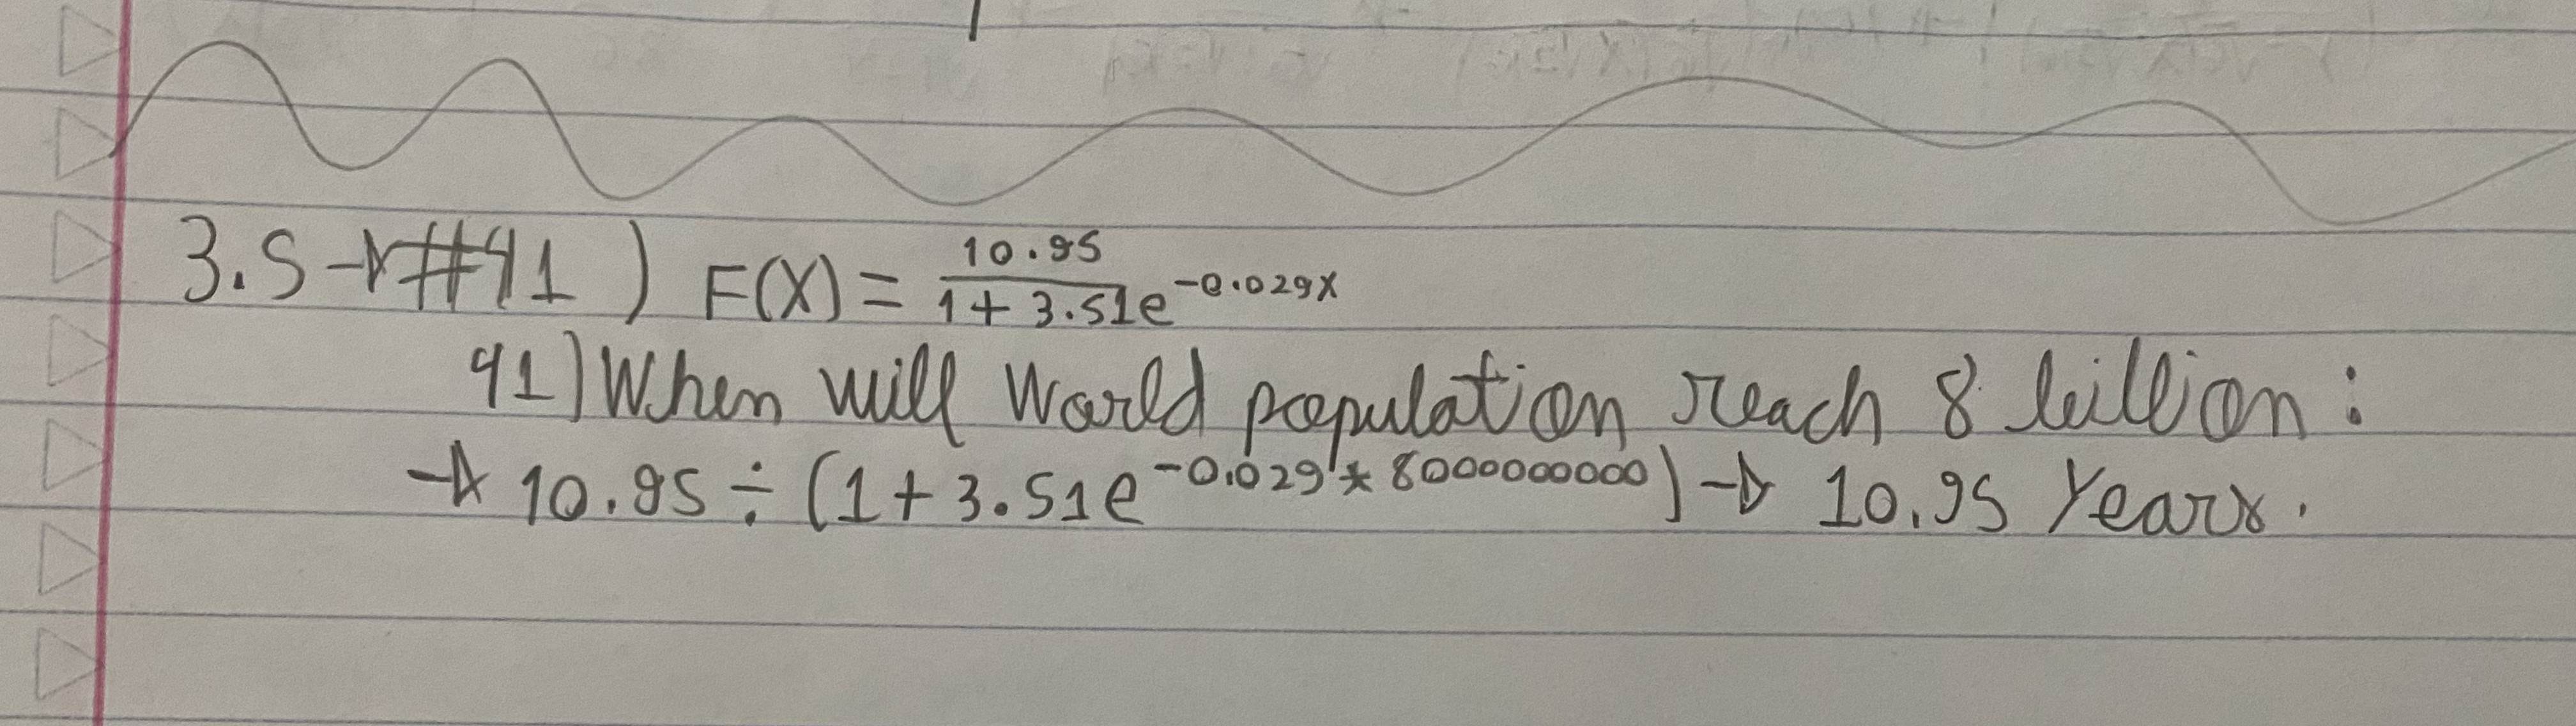 3.5 → #41) F(X) = 10.95 / (1 + 3.51e^-0.029X)
41) When will World population reach 8 billion:
→ 10.95 ÷ (1 + 3.51e^-0.029 * 8000000000) → 10.95 Years.